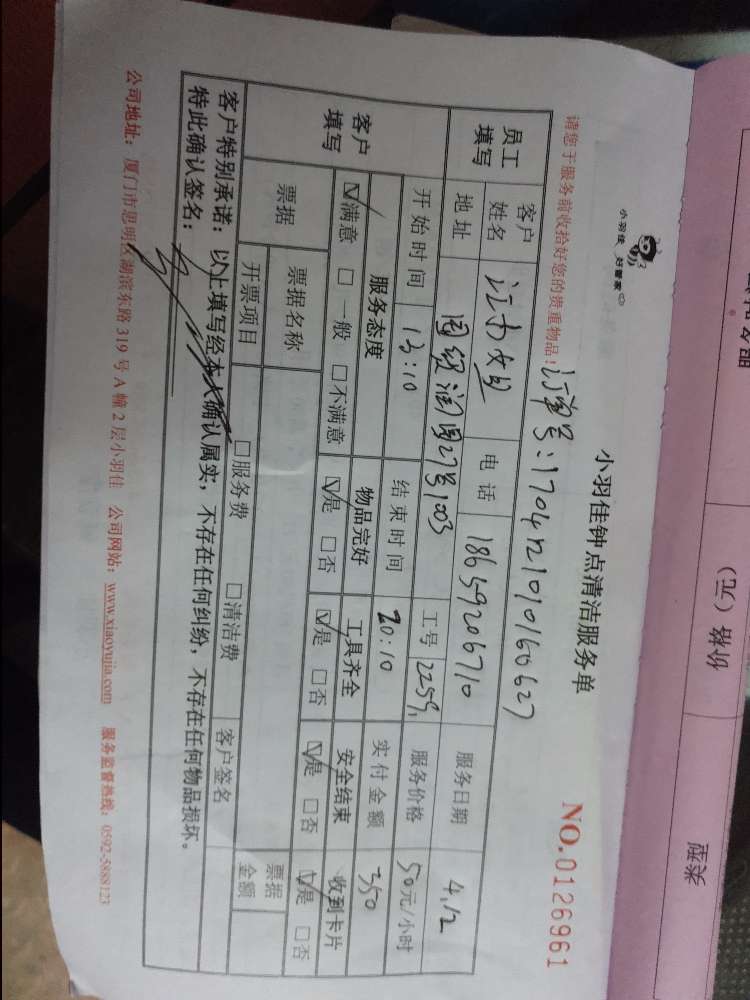 价格（元）
小羽佳 好管家
小羽佳钟点清洁服务单
请您于服务前收拾好您的贵重物品！
NO.0126961
订单号:170412101016062７
员工填写
客户姓名
电话
18659206710
服务日期
4.12
地址
国贸润园27号1003
工号
2259
服务价格
50元/小时
客户填写
开始时间
13:10
结束时间
20:10
实付金额
350
服务态度
物品完好
工具齐全
安全结束
收到卡片
☑满意 □一般 □不满意
☑是 □否
☑是 □否
☑是 □否
☑是 □否
票据
票据名称
开票项目
□服务费 □清洁费
客户签名
票据金额
客户特别承诺：以上填写经本人确认属实，不存在任何纠纷，不存在任何物品损坏。
特此确认签名：
公司地址：厦门市思明区湖滨东路 319 号 A 幢 2 层小羽佳 公司网站：www.xiaoyujia.com 服务监督热线：0592-5888123